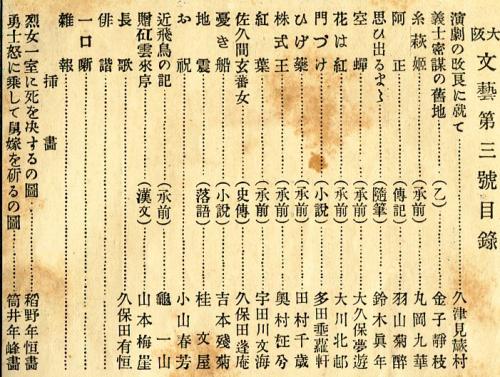 大阪文藝第三號目錄
演劇の改良に就て………久津見蕨村
義士密謀の舊地………(乙)………金子靜枝
糸萩姫………(承前)………丸岡九華
阿正………(傳記)………羽山菊酔
思ひ出るまゝ………(隨筆)………鈴木眞年
空蟬………(承前)………大久保夢遊
花は紅………(承前)………大川北邨
門づけ………(小説)………多田垂蘿軒
ひげ藥………(承前)………田村千歲
株式王………(承前)………奧村
紅葉………(承前)………宇田川文海
佐久間玄番女………(史傳)………久保田蓬庵
憂き船………(小説)………吉本殘菊
地震………(落語)………桂文屋
お祝………小山春芳
近飛鳥の記………(承前)………龜一山
贈矼雲來序………(漢文)………山本梅崖
長歌………久保田有恒
俳諧………
一口噺………
雜報………
挿畫
烈女一室に死を決するの圖………稻野年恒畫
勇士怒に乘して舅嫁を斫るの圖………筒井年峰畫